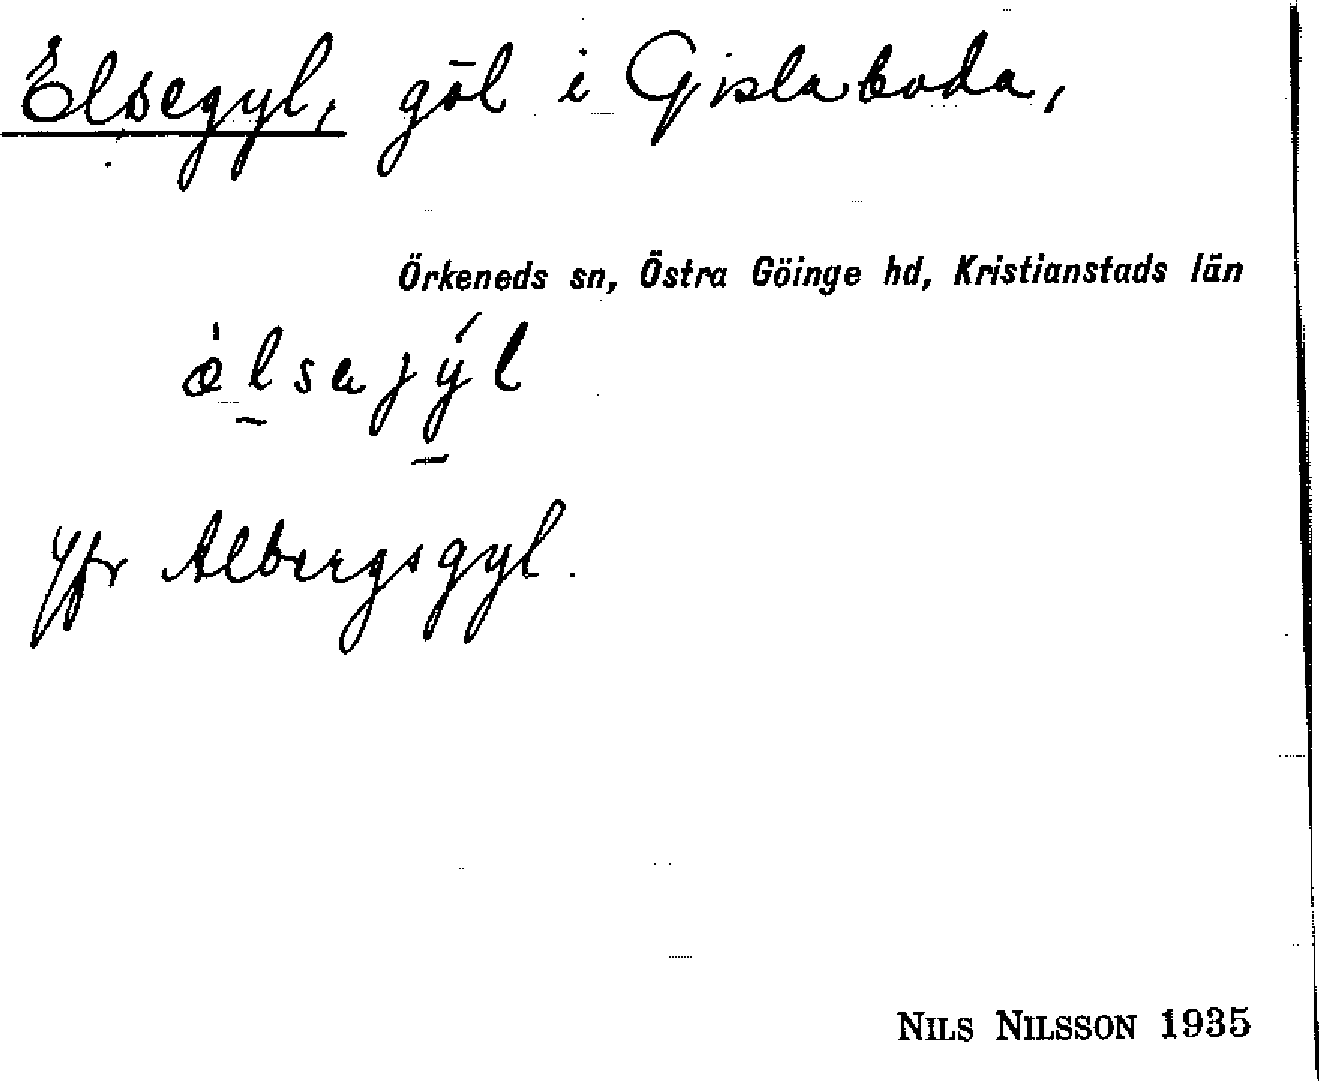 Elsegyl, göl i Gislaboda,
Örkeneds sn, Östra Göinge hd, Kristianstads län
ælsajýl
Jfr Albergsgyl.
NILS NILSSON 1935